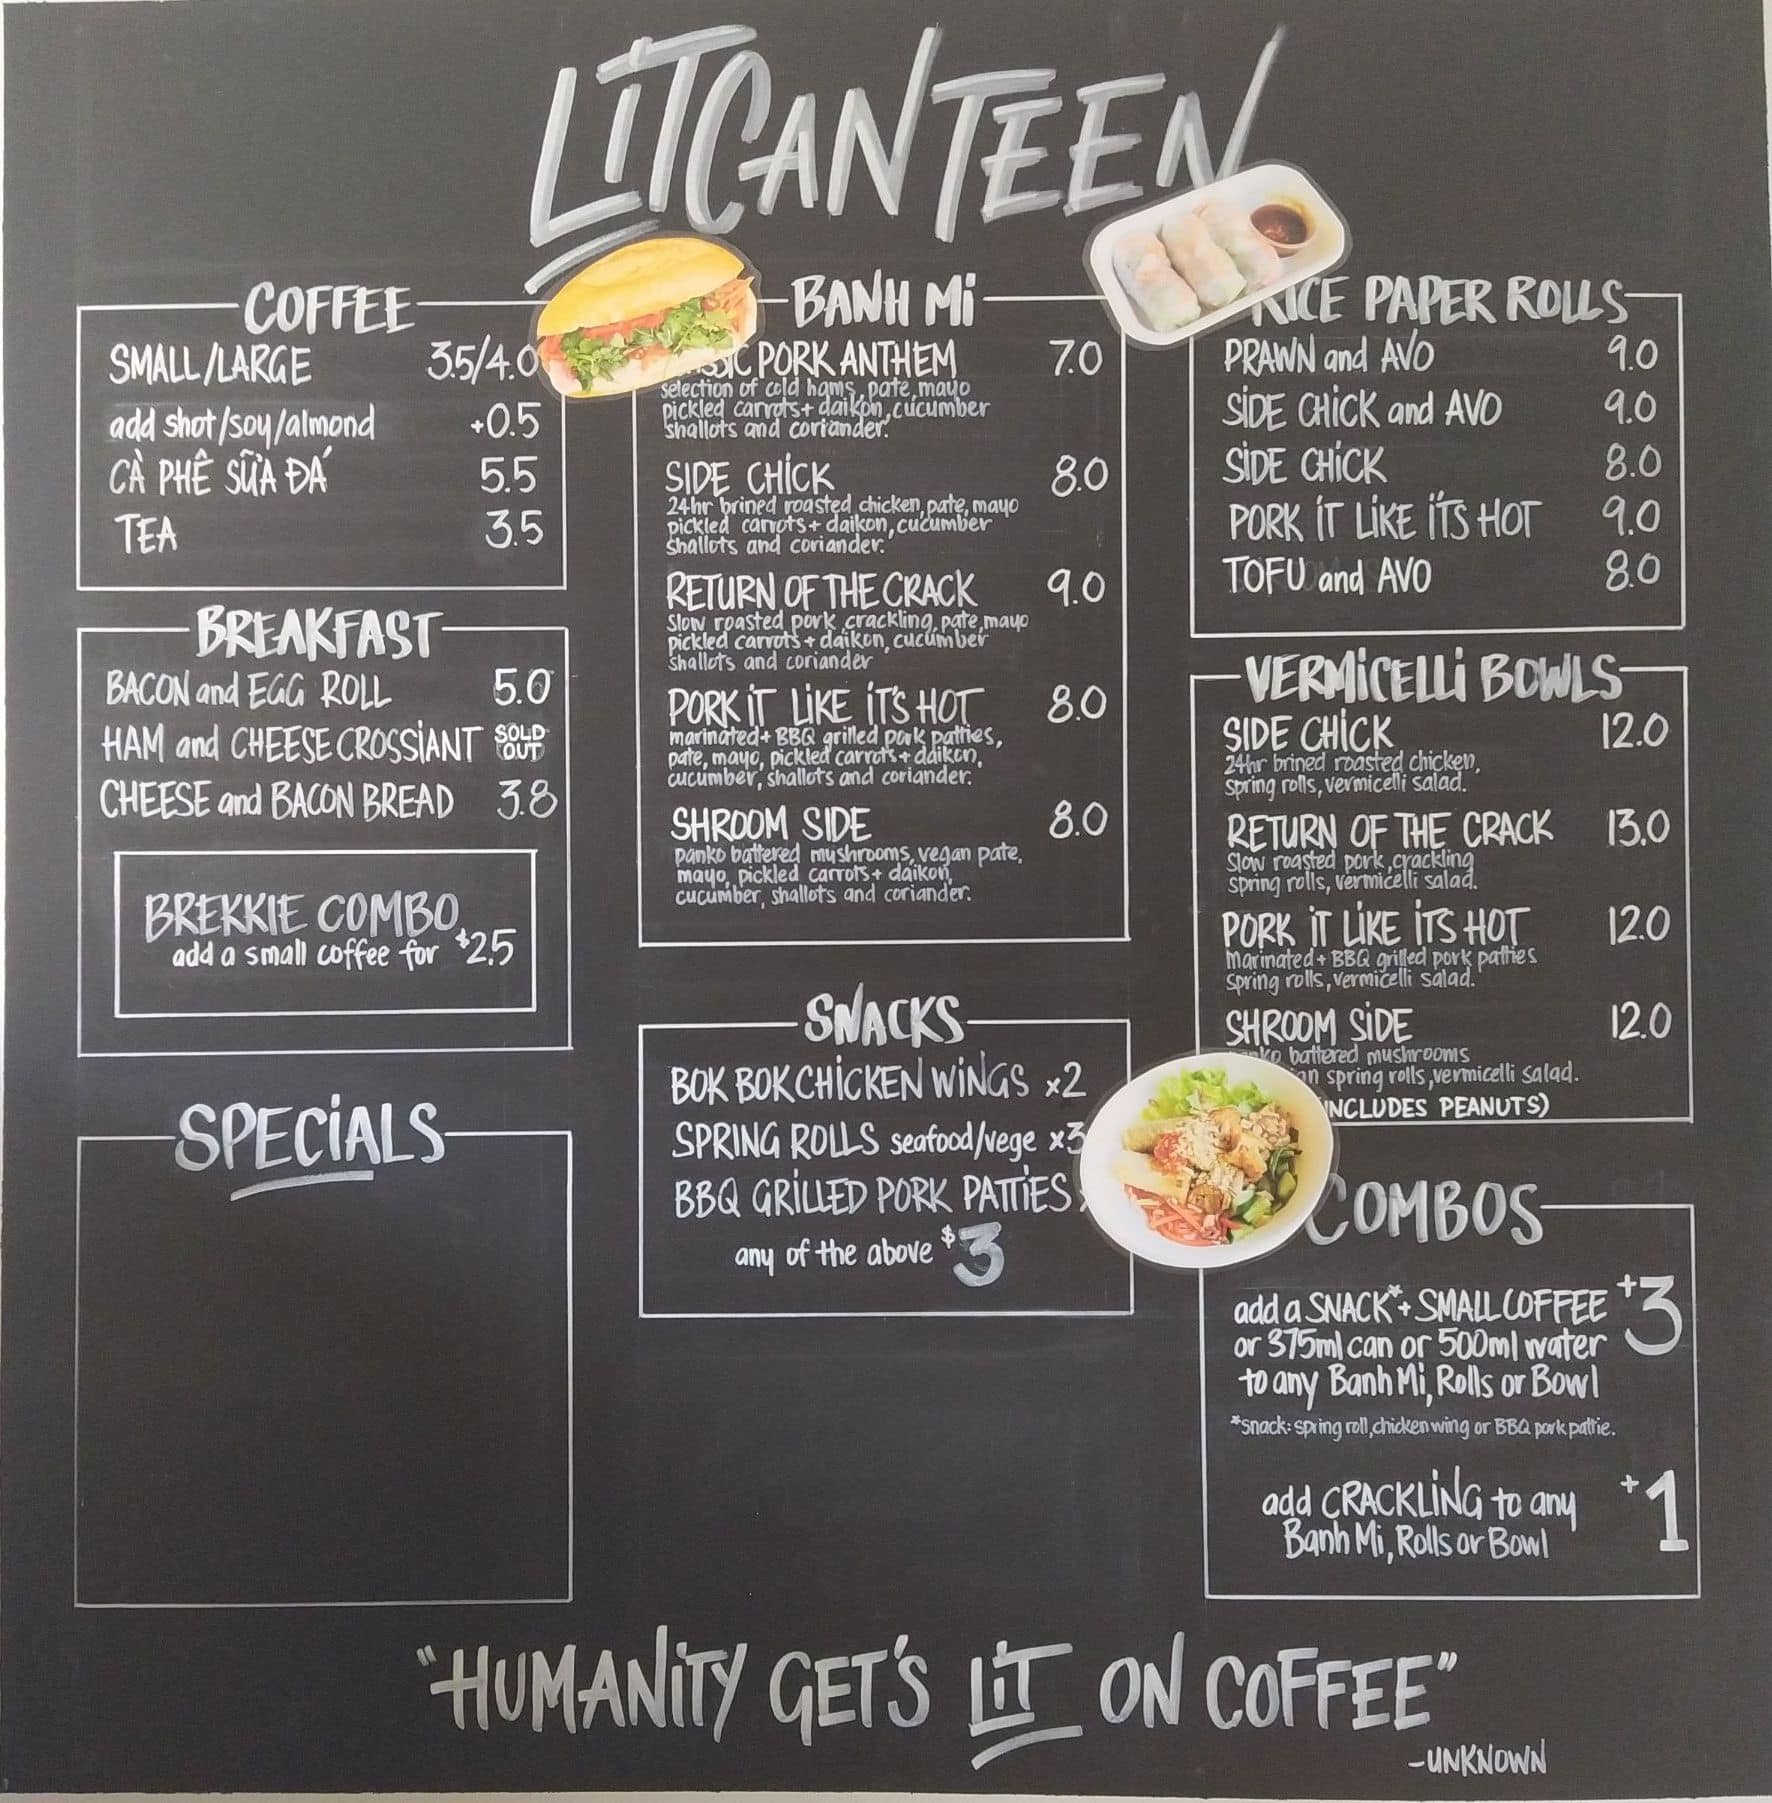 LITCANTEEN
COFFEE
SMALL/LARGE 3.5/4.0
add shot/soy/almond +0.5
CÀ PHÊ SỮA ĐÁ 5.5
TEA 3.5
BREAKFAST
BACON and EGG ROLL 5.0
HAM and CHEESE CROSSIANT SOLD OUT
CHEESE and BACON BREAD 3.8
BREKKIE COMBO
add a small coffee for $2.5
SPECIALS
BANH Mi
PORK ANTHEM 7.0
selection of cold hams, pate, mayo
pickled carrots + daikon, cucumber
shallots and coriander.
SIDE CHICK 8.0
24hr brined roasted chicken, pate, mayo
pickled carrots + daikon, cucumber
shallots and coriander.
RETURN OF THE CRACK 9.0
Slow roasted pork, crackling, pate, mayo
pickled carrots + daikon, cucumber
shallots and coriander
PORK IT LIKE IT'S HOT 8.0
marinated + BBQ grilled pork patties,
pate, mayo, pickled carrots + daikon,
cucumber, shallots and coriander.
SHROOM SIDE 8.0
panko battered mushrooms, vegan pate,
mayo, pickled carrots + daikon,
cucumber, shallots and coriander.
SNACKS
BOK BOK CHICKEN WINGS x2
SPRING ROLLS seafood/vege x3
BBQ GRILLED PORK PATTIES
any of the above $3
RICE PAPER ROLLS
PRAWN and AVO 9.0
SIDE CHICK and AVO 9.0
SIDE CHICK 8.0
PORK IT LIKE IT'S HOT 9.0
TOFU and AVO 8.0
VERMICELLI BOWLS
SIDE CHICK 12.0
24hr brined roasted chicken,
spring rolls, vermicelli salad.
RETURN OF THE CRACK 13.0
Slow roasted pork, crackling
spring rolls, vermicelli salad.
PORK IT LIKE IT'S HOT 12.0
Marinated + BBQ grilled pork patties
spring rolls, vermicelli salad.
SHROOM SIDE 12.0
battered mushrooms
spring rolls, vermicelli salad.
INCLUDES PEANUTS)
COMBOS
add a SNACK* + SMALL COFFEE +3
or 375ml can or 500ml water
to any Banh Mi, Rolls or Bowl
*Snack: spring roll, chicken wing or BBQ pork pattie.
add CRACKLING to any +1
Banh Mi, Rolls or Bowl
"HUMANITY GET'S LIT ON COFFEE"
-UNKNOWN